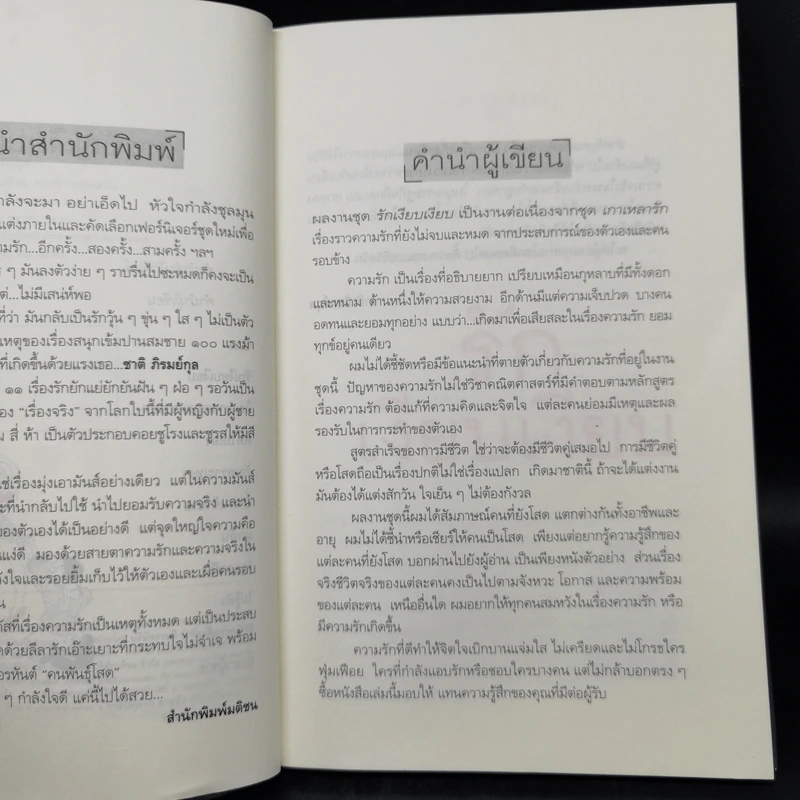 นำสำนักพิมพ์
กำลังจะมา อย่าเอ็ดไป หัวใจกำลังชุลมุน
แต่งภายในและคัดเลือกเฟอร์นิเจอร์ชุดใหม่เพื่อ
ความรัก...อีกครั้ง...สองครั้ง...สามครั้ง ฯลฯ
ๆ มันลงตัวง่าย ๆ ราบรื่นไปซะหมดก็คงจะเป็น
แต่...ไม่มีเสน่ห์พอ
ที่ว่า มันกลับเป็นรักวุ้น ๆ ขุ่น ๆ ใส ๆ ไม่เป็นตัว
เหตุของเรื่องสนุกเข้มปานสมชาย ๑๐๐ แรงม้า
ที่เกิดขึ้นด้วยแรงเธอ...ชาติ ภิรมย์กุล
๑๑ เรื่องรักยักแย่ยักยันฝัน ๆ ฝ่อ ๆ รอวันเป็น
ของ “เรื่องจริง” จากโลกใบนี้ที่มีผู้หญิงกับผู้ชาย
สี่ ห้า เป็นตัวประกอบคอยชูโรงและชูรสให้มีสี
ใช่เรื่องมุ่งเอามันส์อย่างเดียว แต่ในความมันส์
ะที่นำกลับไปใช้ นำไปยอมรับความจริง และนำ
ของตัวเองได้เป็นอย่างดี แต่จุดใหญ่ใจความคือ
แง่ดี มองด้วยสายตาความรักและความจริงใน
ังใจและรอยยิ้มเก็บไว้ให้ตัวเองและเผื่อคนรอบ
น
ัสที่เรื่องความรักเป็นเหตุทั้งหมด แต่เป็นประสบ
ดด้วยลีลารักเอ๊าะเยาะที่กระทบใจไม่จำเจ พร้อม
อรหันต์ “คนพันธุ์โสด”
ๆ กำลังใจดี แค่นี้ไปได้สวย...
สำนักพิมพ์มติชน
คำนำผู้เขียน
ผลงานชุด รักเงียบเงียบ เป็นงานต่อเนื่องจากชุด เกาเหลารัก
เรื่องราวความรักที่ยังไม่จบและหมด จากประสบการณ์ของตัวเองและคน
รอบข้าง
ความรัก เป็นเรื่องที่อธิบายยาก เปรียบเหมือนกุหลาบที่มีทั้งดอก
และหนาม ด้านหนึ่งให้ความสวยงาม อีกด้านมีแต่ความเจ็บปวด บางคน
อดทนและยอมทุกอย่าง แบบว่า...เกิดมาเพื่อเสียสละในเรื่องความรัก ยอม
ทุกข์อยู่คนเดียว
ผมไม่ได้ชี้ชัดหรือมีข้อแนะนำที่ตายตัวเกี่ยวกับความรักที่อยู่ในงาน
ชุดนี้ ปัญหาของความรักไม่ใช่วิชาคณิตศาสตร์ที่มีคำตอบตามหลักสูตร
เรื่องความรัก ต้องแก้ที่ความคิดและจิตใจ แต่ละคนย่อมมีเหตุและผล
รองรับในการกระทำของตัวเอง
สูตรสำเร็จของการมีชีวิต ใช่ว่าจะต้องมีชีวิตคู่เสมอไป การมีชีวิตคู่
หรือโสดถือเป็นเรื่องปกติไม่ใช่เรื่องแปลก เกิดมาชาตินี้ ถ้าจะได้แต่งงาน
มันต้องได้แต่งสักวัน ใจเย็น ๆ ไม่ต้องกังวล
ผลงานชุดนี้ผมได้สัมภาษณ์คนที่ยังโสด แตกต่างกันทั้งอาชีพและ
อายุ ผมไม่ได้ชี้นำหรือเชียร์ให้คนเป็นโสด เพียงแต่อยากรู้ความรู้สึกของ
แต่ละคนที่ยังโสด บอกผ่านไปยังผู้อ่าน เป็นเพียงหนังตัวอย่าง ส่วนเรื่อง
จริงชีวิตจริงของแต่ละคนคงเป็นไปตามจังหวะ โอกาส และความพร้อม
ของแต่ละคน เหนืออื่นใด ผมอยากให้ทุกคนสมหวังในเรื่องความรัก หรือ
มีความรักเกิดขึ้น
ความรักที่ดีทำให้จิตใจเบิกบานแจ่มใส ไม่เครียดและไม่โกรธใคร
ฟุ่มเฟือย ใครที่กำลังแอบรักหรือชอบใครบางคน แต่ไม่กล้าบอกตรง ๆ
ซื้อหนังสือเล่มนี้มอบให้ แทนความรู้สึกของคุณที่มีต่อผู้รับ